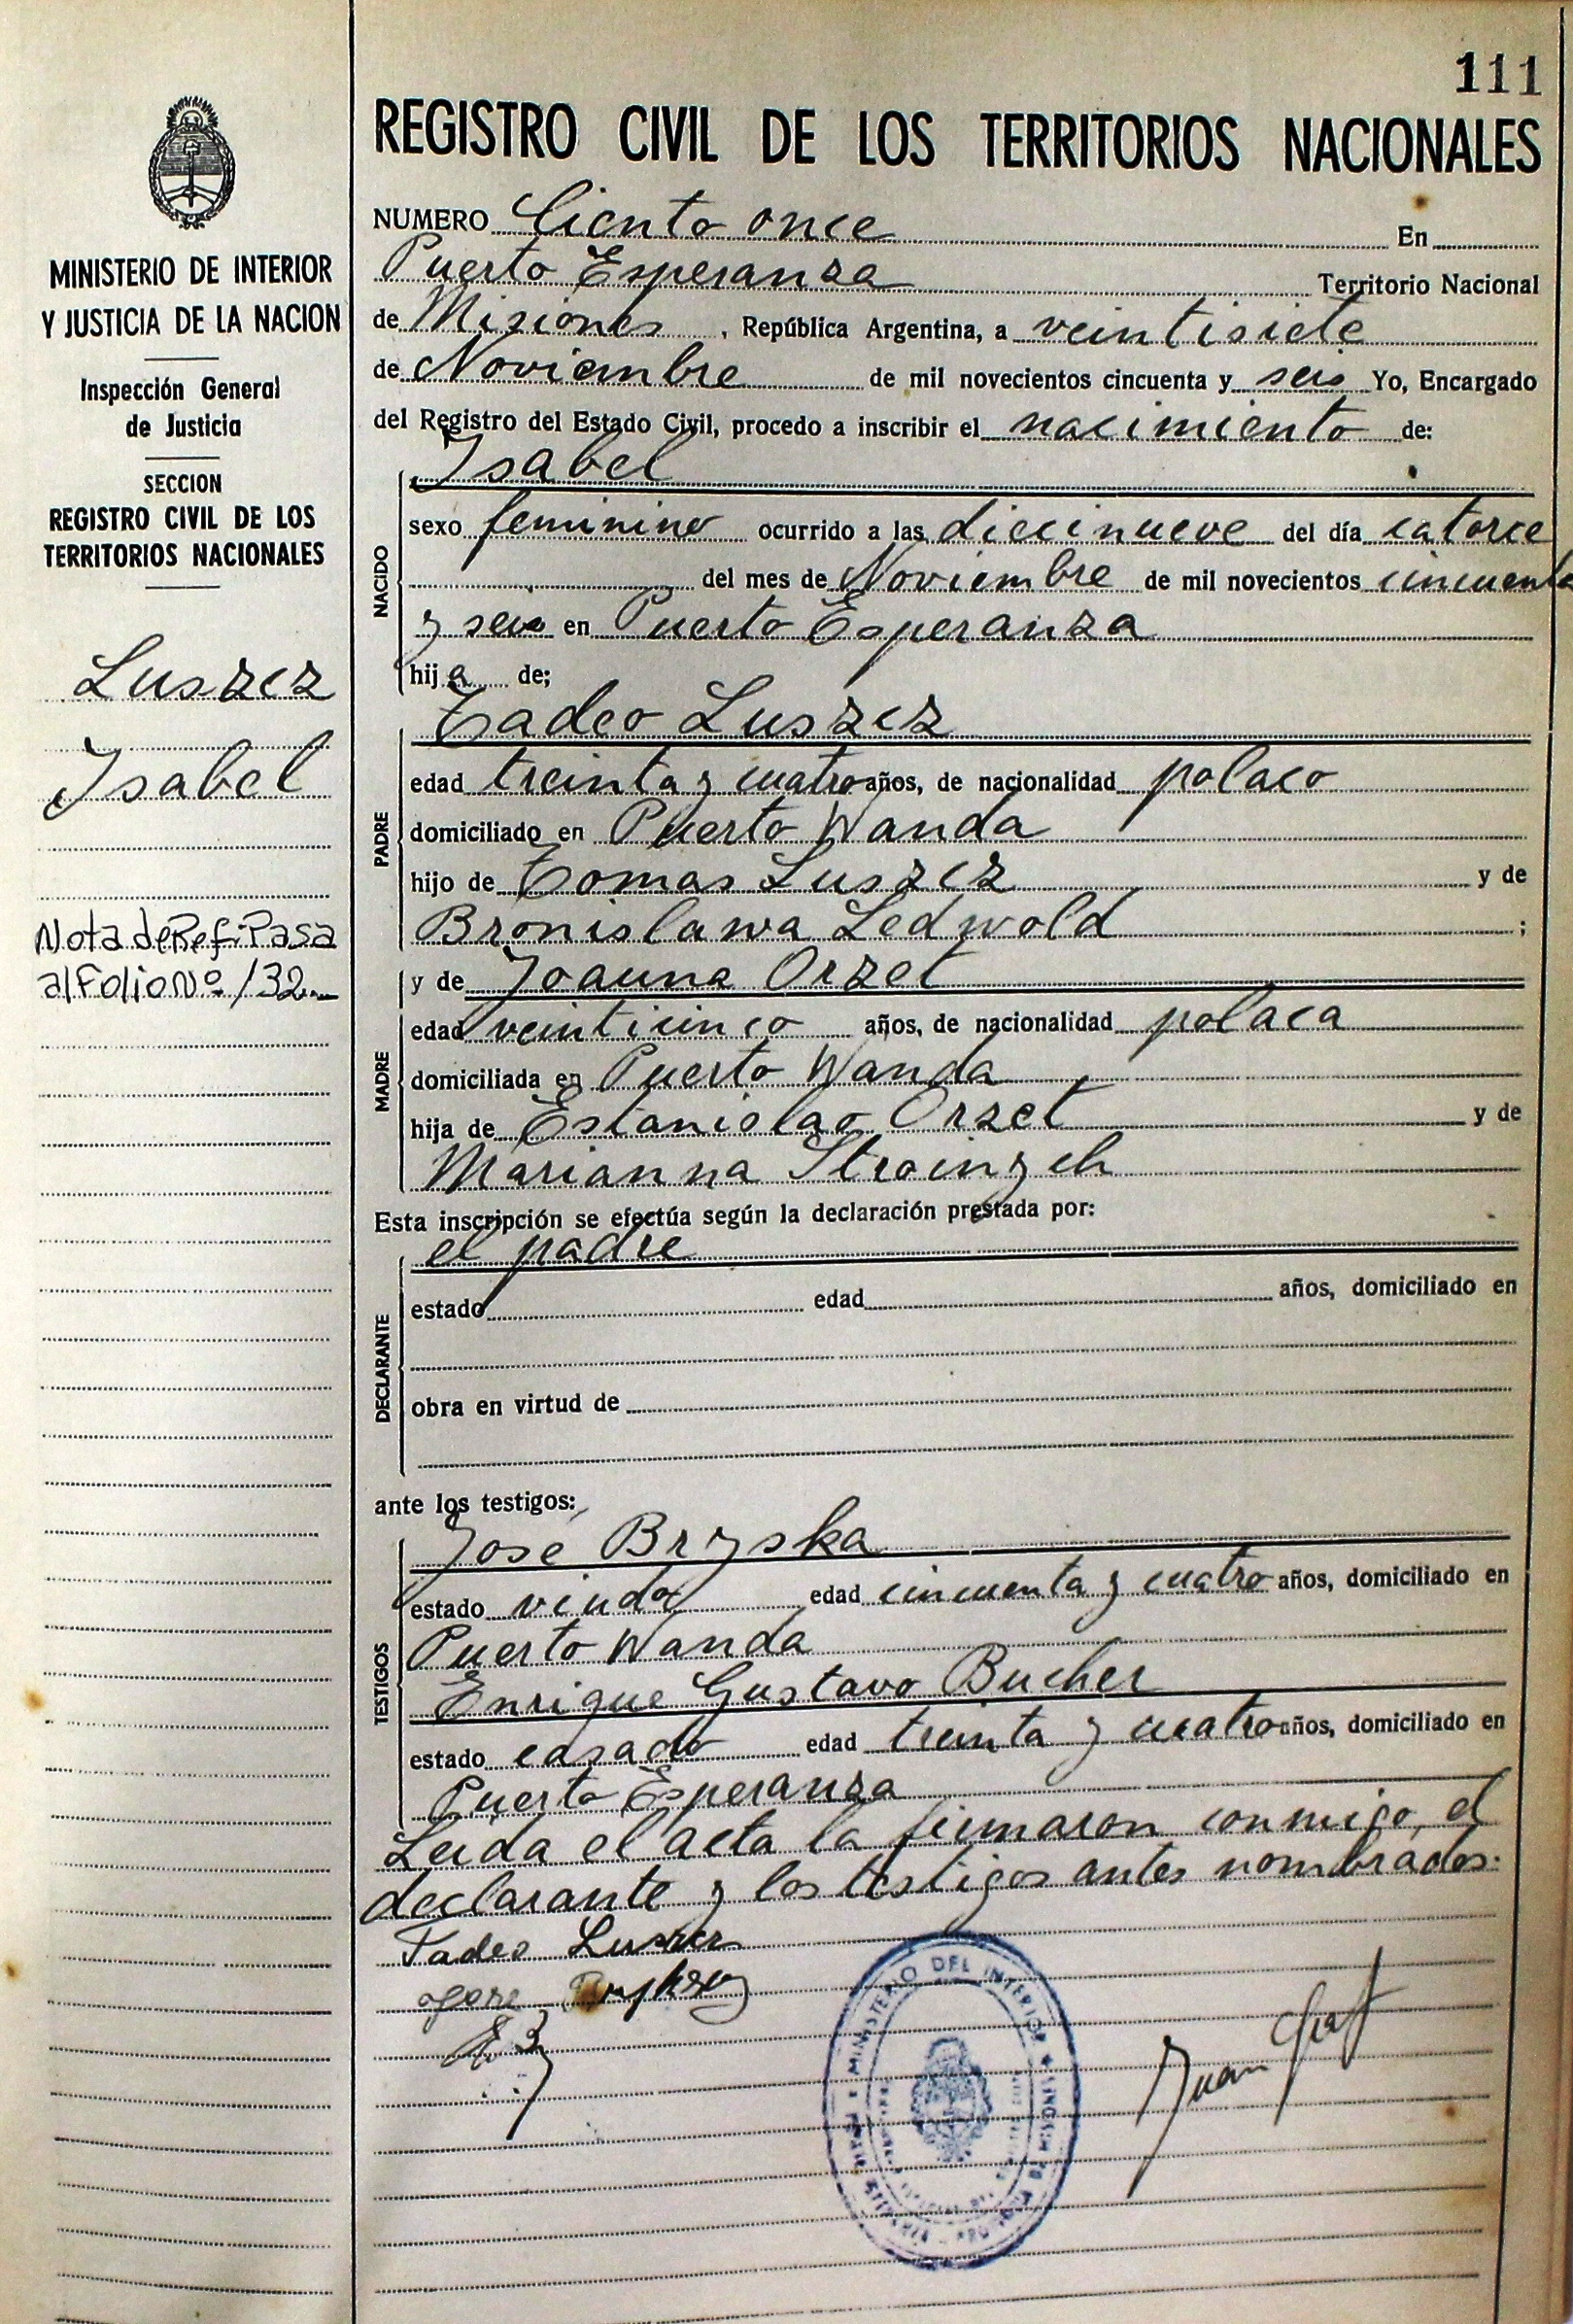 111
REGISTRO CIVIL DE LOS TERRITORIOS NACIONALES
MINISTERIO DE INTERIOR
Y JUSTICIA DE LA NACION
Inspección General
de Justicia
SECCION
REGISTRO CIVIL DE LOS
TERRITORIOS NACIONALES
Luszcz
Isabel
Nota de Ref: Pasa
al Folio Nº 132
NUMERO Ciento once En
Puerto Esperanza Territorio Nacional
de Misiones, República Argentina, a veintisiete
de Noviembre de mil novecientos cincuenta y seis Yo, Encargado
del Registro del Estado Civil, procedo a inscribir el nacimiento de:
NACIDO
Isabel
sexo feminino ocurrido a las diecinueve del día catorce
del mes de Noviembre de mil novecientos cincuenta
y seis en Puerto Esperanza
hija de;
PADRE
Tadeo Luszcz
edad treinta y cuatro años, de nacionalidad polaco
domiciliado en Puerto Wanda
hijo de Tomas Luszcz y de
Bronislawa Ledwold ;
y de Joanna Orzet
MADRE
edad veinticinco años, de nacionalidad polaca
domiciliada en Puerto Wanda
hija de Estanislao Orzet y de
Marianna Stroinych
Esta inscripción se efectúa según la declaración prestada por:
DECLARANTE
el padre
estado edad años, domiciliado en
obra en virtud de
ante los testigos:
TESTIGOS
José Bryska
estado viudo edad cincuenta y cuatro años, domiciliado en
Puerto Wanda
Enrique Gustavo Bucher
estado casado edad treinta y cuatro años, domiciliado en
Puerto Esperanza
Leida el acta la firmaron conmigo, el
declarante y los testigos antes nombrados.
Tadeo Luszcz
MINISTERIO DEL INTERIOR
Juan